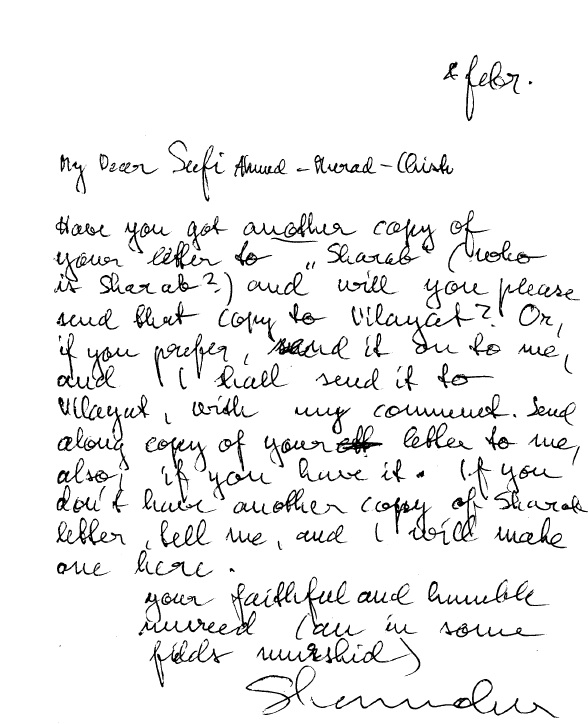 8 febr.
My Dear Sufi Ahmed-Murad-Chisti
Have you got another copy of
your letter to "Sharab" (who
is Sharab?) and will you please
send that copy to Vilayat? Or,
if you prefer, send it on to me,
and I shall send it to
Vilayat, with my comment. Send
along copy of your letter to me,
also, if you have it. If you
don't have another copy of Sharab
letter, tell me, and I will make
one here.
your faithful and humble
mureed (an in some
fields murshid)
Shamcher